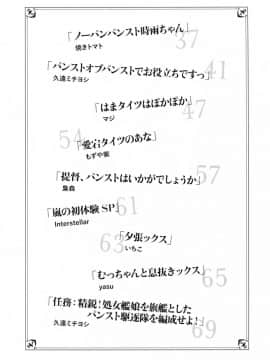 「ノーパンパンスト時雨ちゃん」
焼きトマト
37
「パンストオブパンストでお役立ちですっ」
久遠ミチヨシ
41
「はまタイツはぽかぽか」
マジ
47
「愛宕タイツのあな」
もずや紫
54
「提督、パンストはいかがでしょうか」
57
「嵐の初体験SP」
Interstellar
61
「夕張ックス」
いちこ
63
「むっちゃんと息抜きックス」
yasu
65
「任務：精鋭！処女艦娘を旗艦とした
パンスト駆逐隊を編成せよ！」
久遠ミチヨシ
69